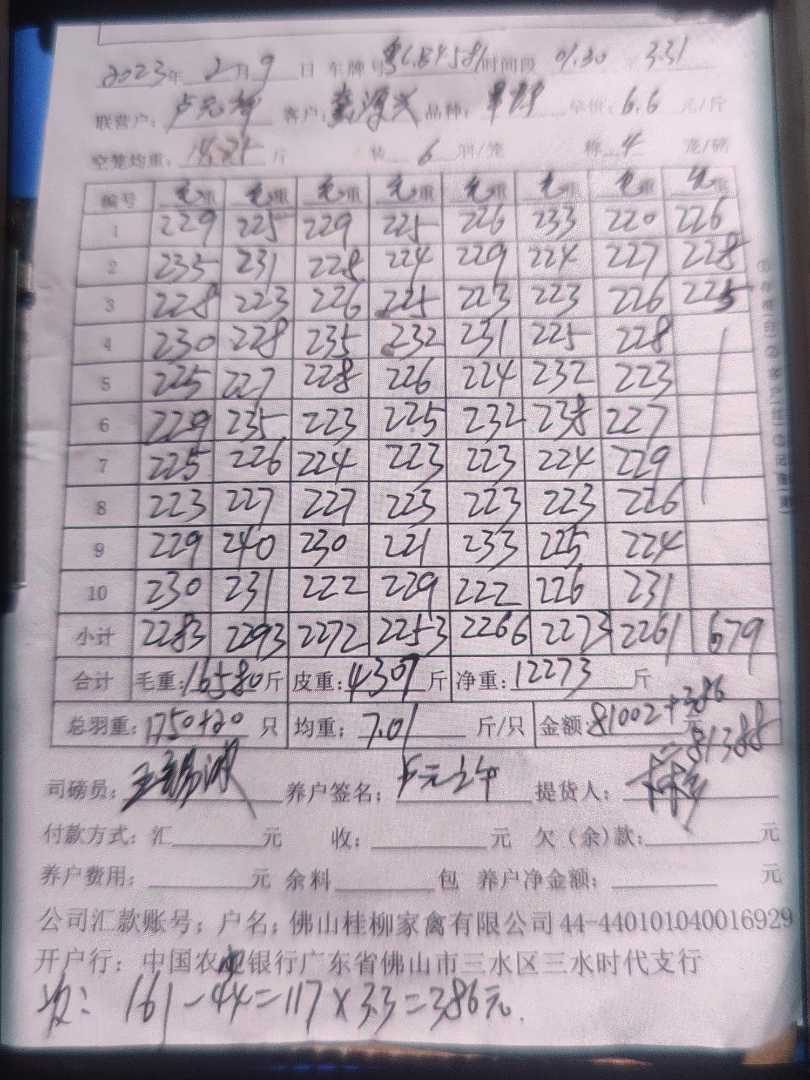 2023年 2月 9 日 车牌号 粤C84581 时间段 01.30 至 3.31
联营户: 客户: 品种: 单价: 6.6 元/斤
空笼均重: 斤 装 6 羽/笼 称 4 笼/磅
编号 毛重 毛重 毛重 毛重 毛重 毛重 毛重 毛重
1 229 225 229 225 226 233 220 226
2 235 231 228 224 229 224 227 228
3 228 223 226 225 223 223 226 225
4 230 228 235 232 231 225 228
5 225 227 228 226 224 232 223
6 229 235 223 225 232 238 227
7 225 226 224 223 223 224 229
8 223 227 227 223 223 223 226
9 229 240 230 221 233 225 224
10 230 231 222 229 222 226 231
小计 2283 2293 2272 2253 2266 2273 2261 679
合计 毛重: 16580 斤 皮重: 4307 斤 净重: 12273 斤
总羽重: 1750+20 只 均重: 7.01 斤/只 金额: 81002+386 元
=81388
司磅员: 养户签名: 提货人:
付款方式: 汇 元 收: 元 欠(余)款: 元
养户费用: 元 余料 包 养户净金额: 元
公司汇款账号; 户名; 佛山桂柳家禽有限公司 44-440101040016929
开户行: 中国农业银行广东省佛山市三水区三水时代支行
161-44=117×3.3=386元.